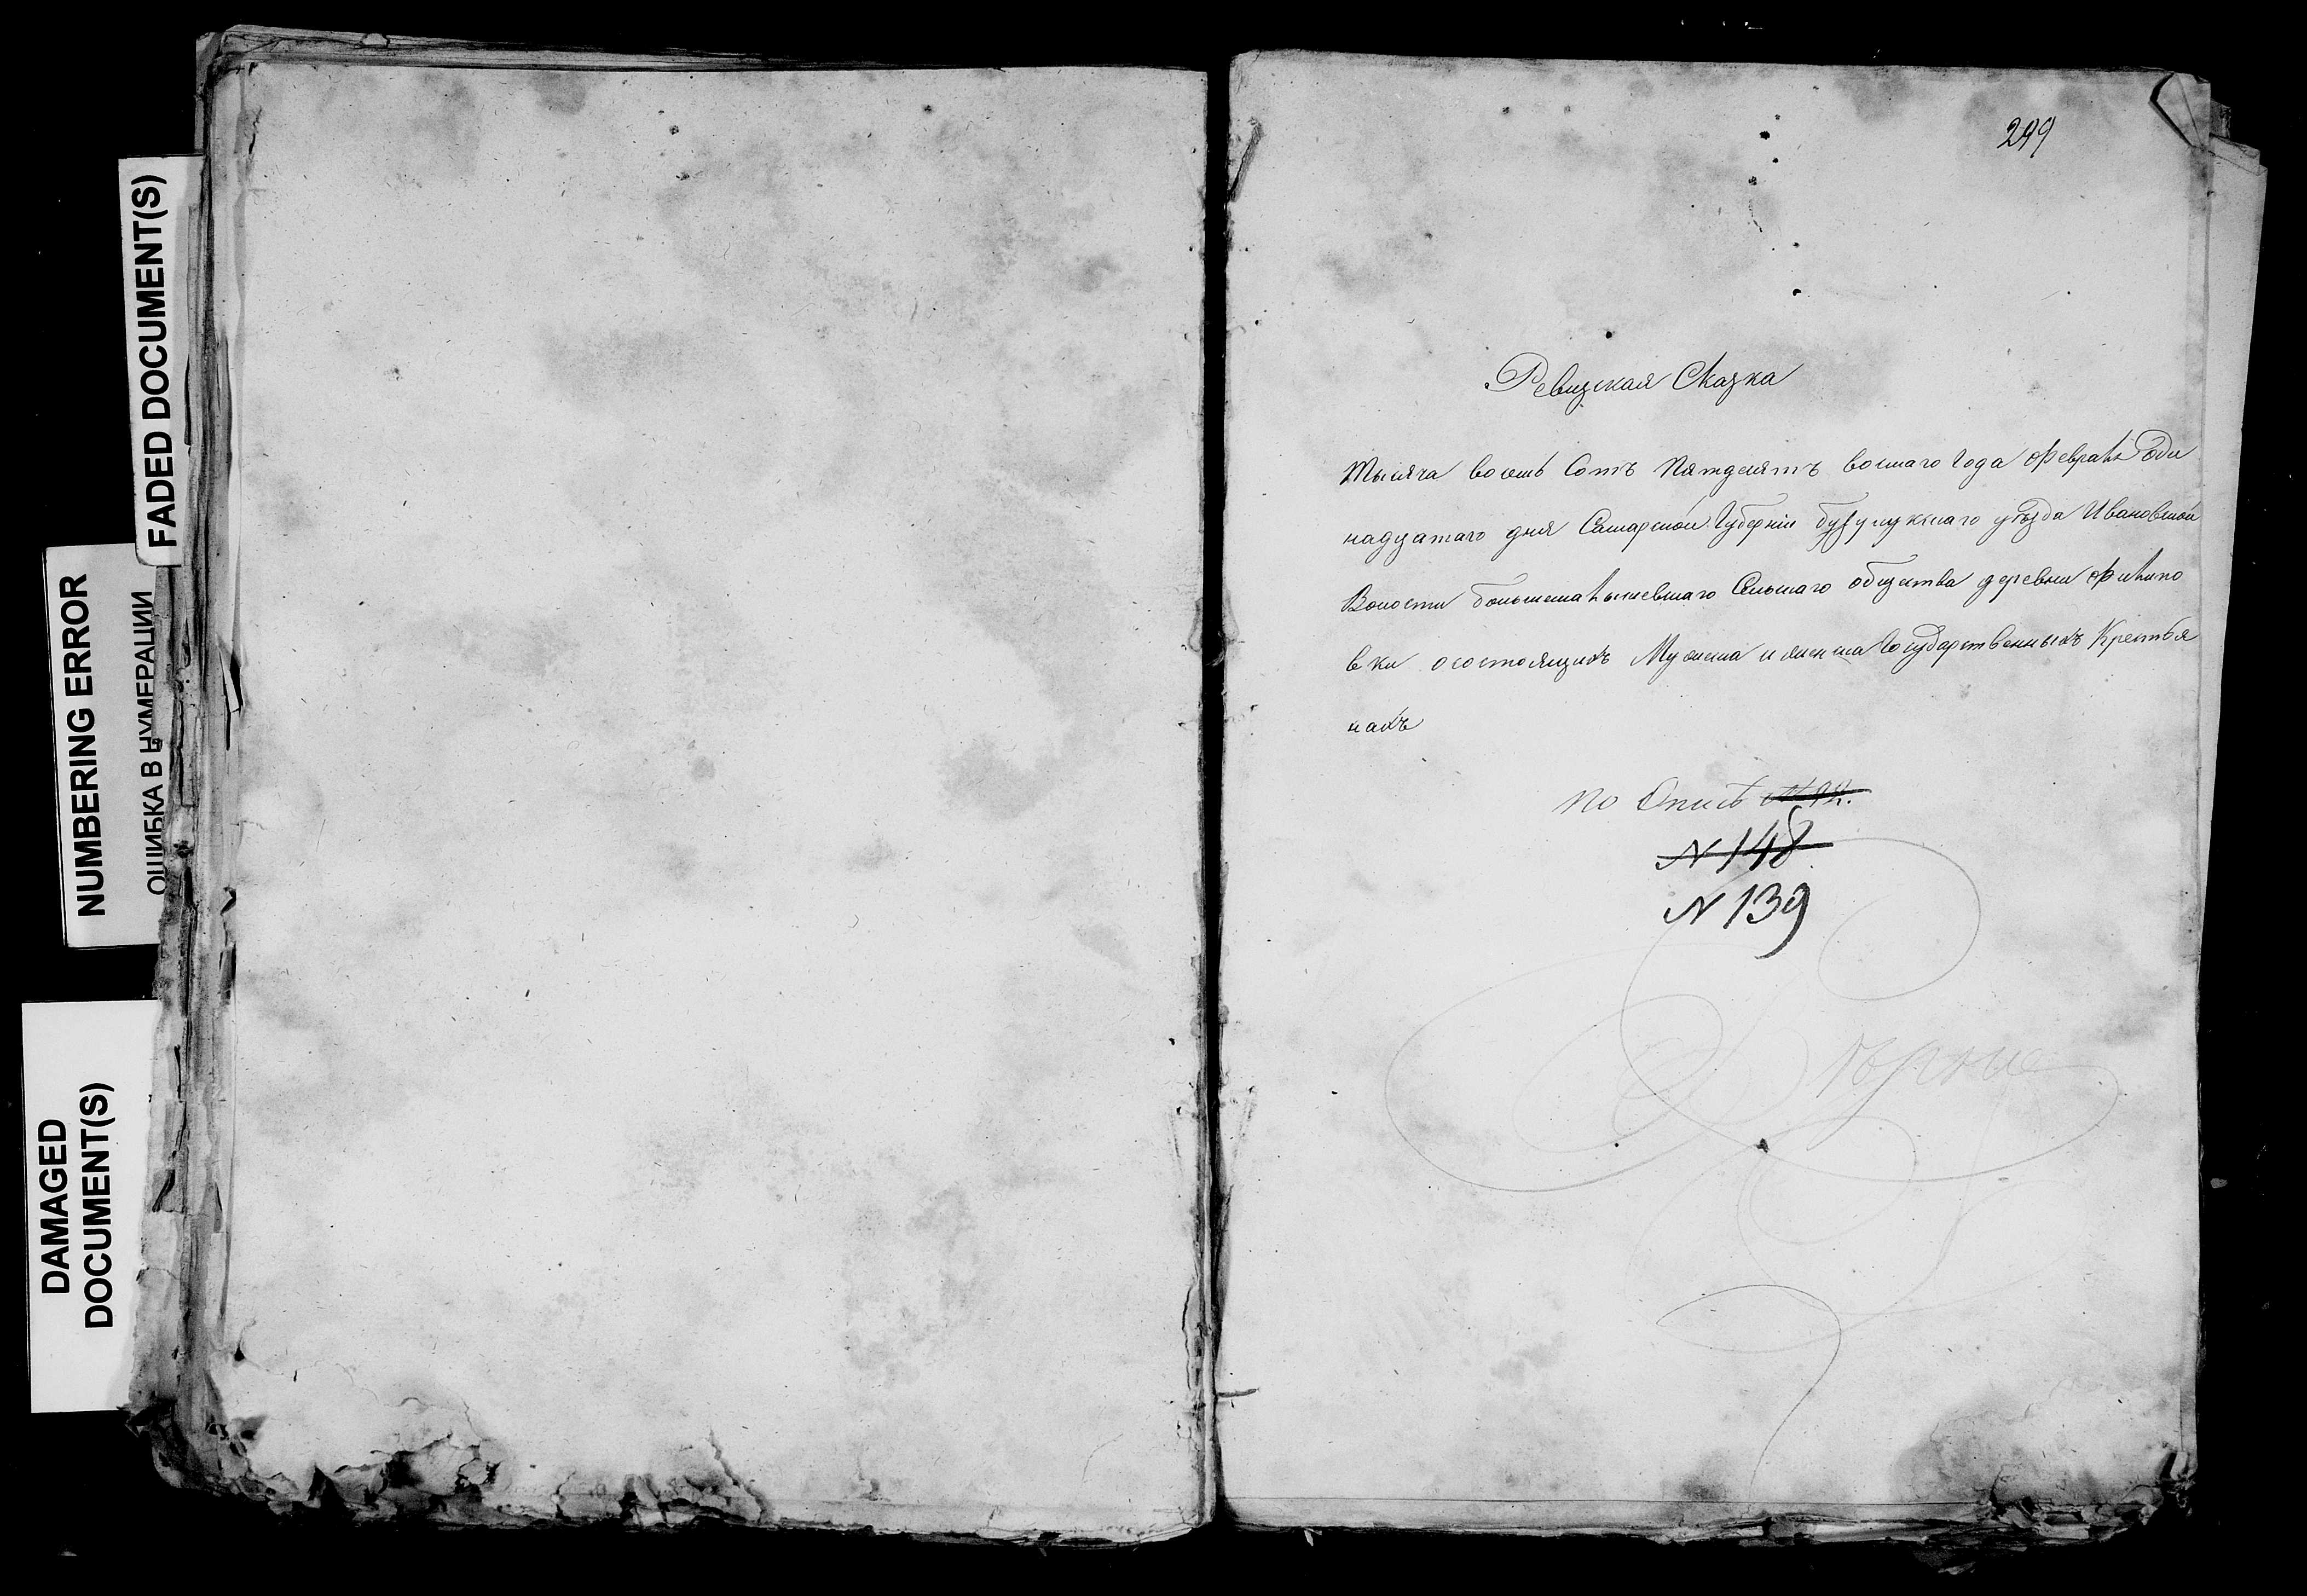 FADED DOCUMENT(S)
NUMBERING ERROR
ОШИБКА В НУМЕРАЦИИ
DAMAGED
DOCUMENT(S)
299
Ревизская Сказка
Тысяча восемь Сотъ Пятдесятъ восмаго Года Февраля Оди
надцатаго дня Самарской Губерніи бузулукскаго уѣзда Ивановской
Волости большемалышевскаго Сельскаго общества деревни Филипо
вки осостоящихъ Мужеска и женска Государственныхъ Крестья
нахъ
по Описѣ
N 148
N 139